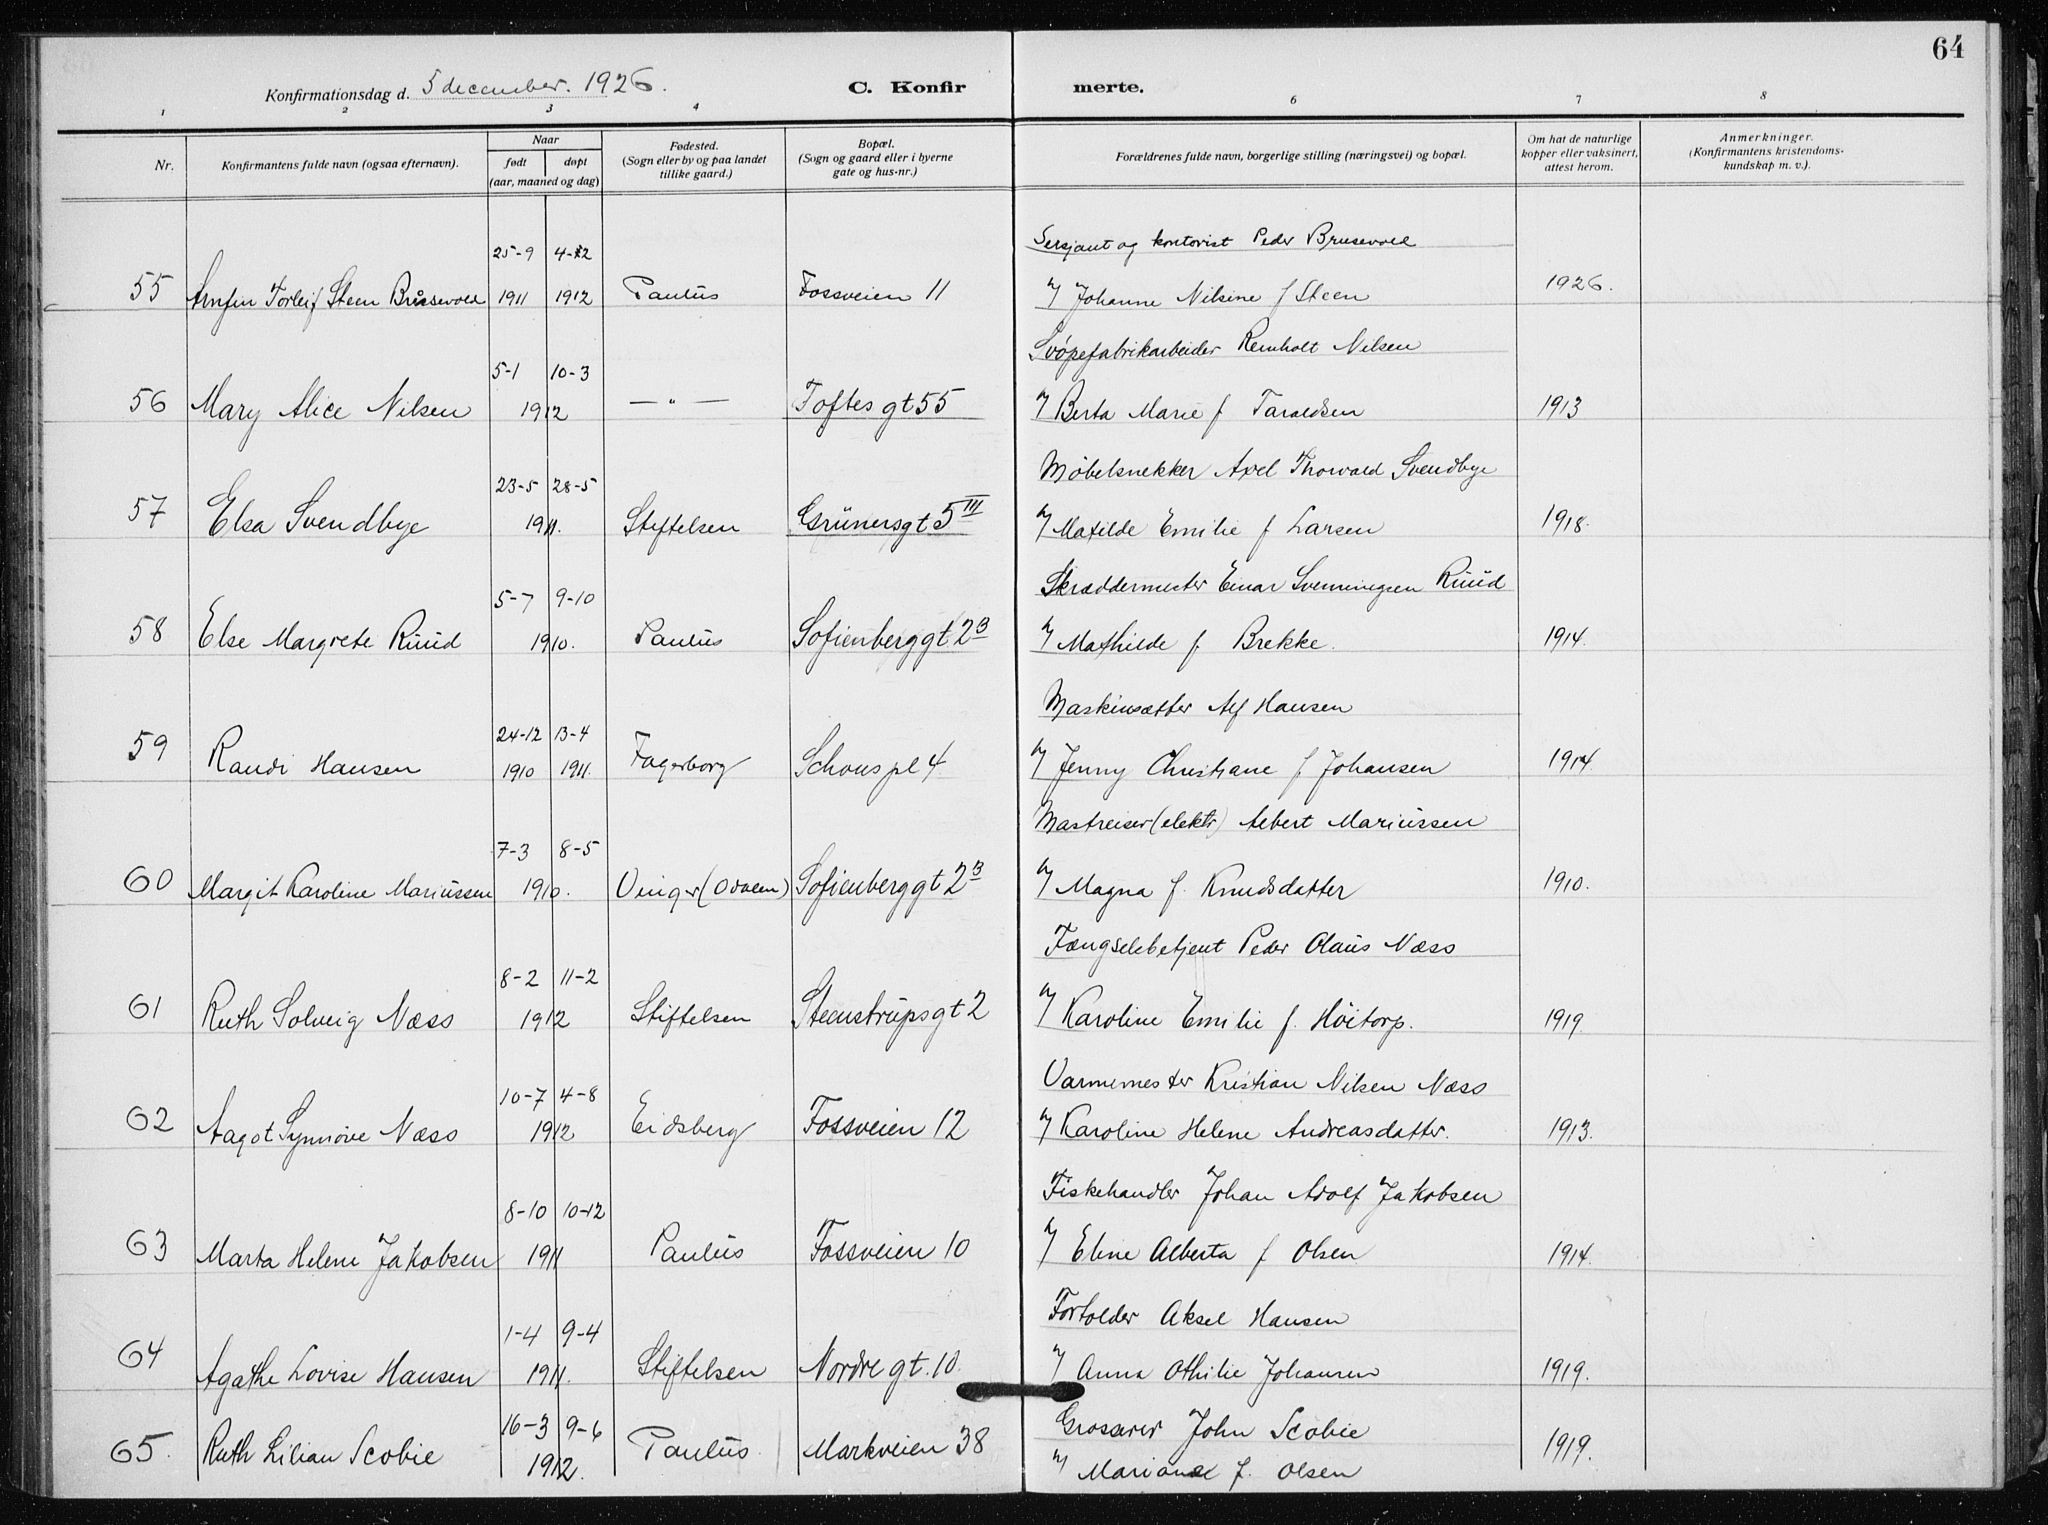 64
Konfirmationsdag d. 5 december. 1926.
C. Konfir merte.
1 2 3 4 6 7 8
Nr.
Konfirmantens fulde navn (ogsaa efternavn).
Naar
født døpt
(aar, maaned og dag)
Fødested.
(Sogn eller by og paa landet
tillike gaard.)
Bopæl.
(Sogn og gaard eller i byerne
gate og hus-nr.)
Forældrenes fulde navn, borgerlige stilling (næringsvei) og bopæl.
Om hat de naturlige
kopper eller vaksinert,
attest herom.
Anmerkninger.
(Konfirmantens kristendoms-
kundskap m. v.).
25-9 4-12 Sersjant og kontorist Peder Brusevold
55 Arnfin Torleif Steen Brusevold 1911 1912 Paulus Fossveien 11 Johanne Nilsine f Steen 1926.
5-1 10-3 Svøpefabrikarbeider Reinholt Nilsen
56 Mary Alice Nilsen 1912 — " — Toftes gt 55 Berta Marie f Taraldsen 1913
23-5 28-5 Møbelsnekker Axel Thorvald Svendbye
57 Elsa Svendbye 1911. Stiftelsen Grünersgt 5 III Matilde Emilie f Larsen 1918.
5-7 9-10 Skræddermester Einar Svenningsen Ruud
58 Else Margrete Ruud 1910. Paulus Sofienberggt 2B Mathilde f. Brekke. 1914.
24-12 13-4 Maskinsætter Alf Hansen
59 Randi Hansen 1910 1911. Fagerborg Schous pl 4 Jenny Christiane f Johansen 1914
7-3 8-5 Mastreiser (elektr) Albert Mariussen
60 Margit Karoline Mariussen 1910. Vinger Sofienberggt 2B Magna f. Knudsdatter 1910.
8-2 11-2 Fængselsbetjent Peder Olaus Næss
61 Ruth Solveig Næss 1912 Stiftelsen Steenstrupsgt 2 Karoline Emilie f. Høitorp. 1919
10-7 4-8 Varmemester Kristian Nilsen Næss
62 Aagot Synnøve Næss 1912 Eidsberg Fossveien 12 Karoline Helene Andreasdatter. 1913.
8-10 10-12 Fiskehandler Johan Adolf Jakobsen
63 Marta Helene Jakobsen 1911 Paulus Fossveien 10 Eline Alberta f Olsen 1914.
1-4 9-4 Forgolder Aksel Hansen
64 Agathe Lovise Hansen 1911. Stiftelsen Nordre gt. 10. Anna Othilie Johansen 1919.
16-3 9-6 Grosserer John Scobie
65. Ruth Lilian Scobie 1912. Paulus. Markveien 38 Mariane f. Olsen 1919.